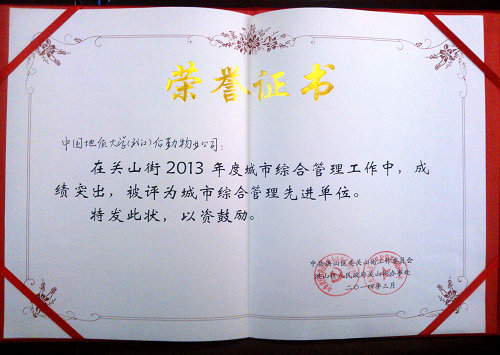 荣誉证书
中国地质大学(武汉)后勤物业公司：
在关山街2013年度城市综合管理工作中，成
绩突出，被评为城市综合管理先进单位。
特发此状，以资鼓励。
中共洪山区委关山街工作委员会
洪山区人民政府关山街办事处
二〇一四年三月